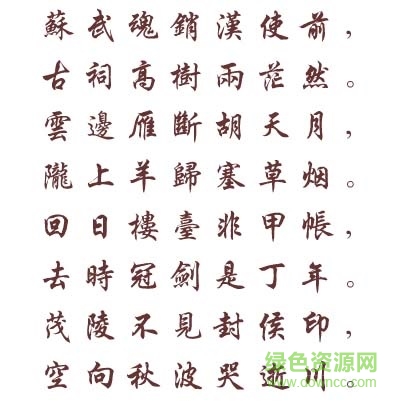 蘇武魂銷漢使前，
古祠高樹兩茫然。
雲邊雁斷胡天月，
隴上羊歸塞草烟。
回日樓臺非甲帳，
去時冠劍是丁年。
茂陵不見封侯印，
空向秋波哭逝川。
绿色资源网
www.downcc.com